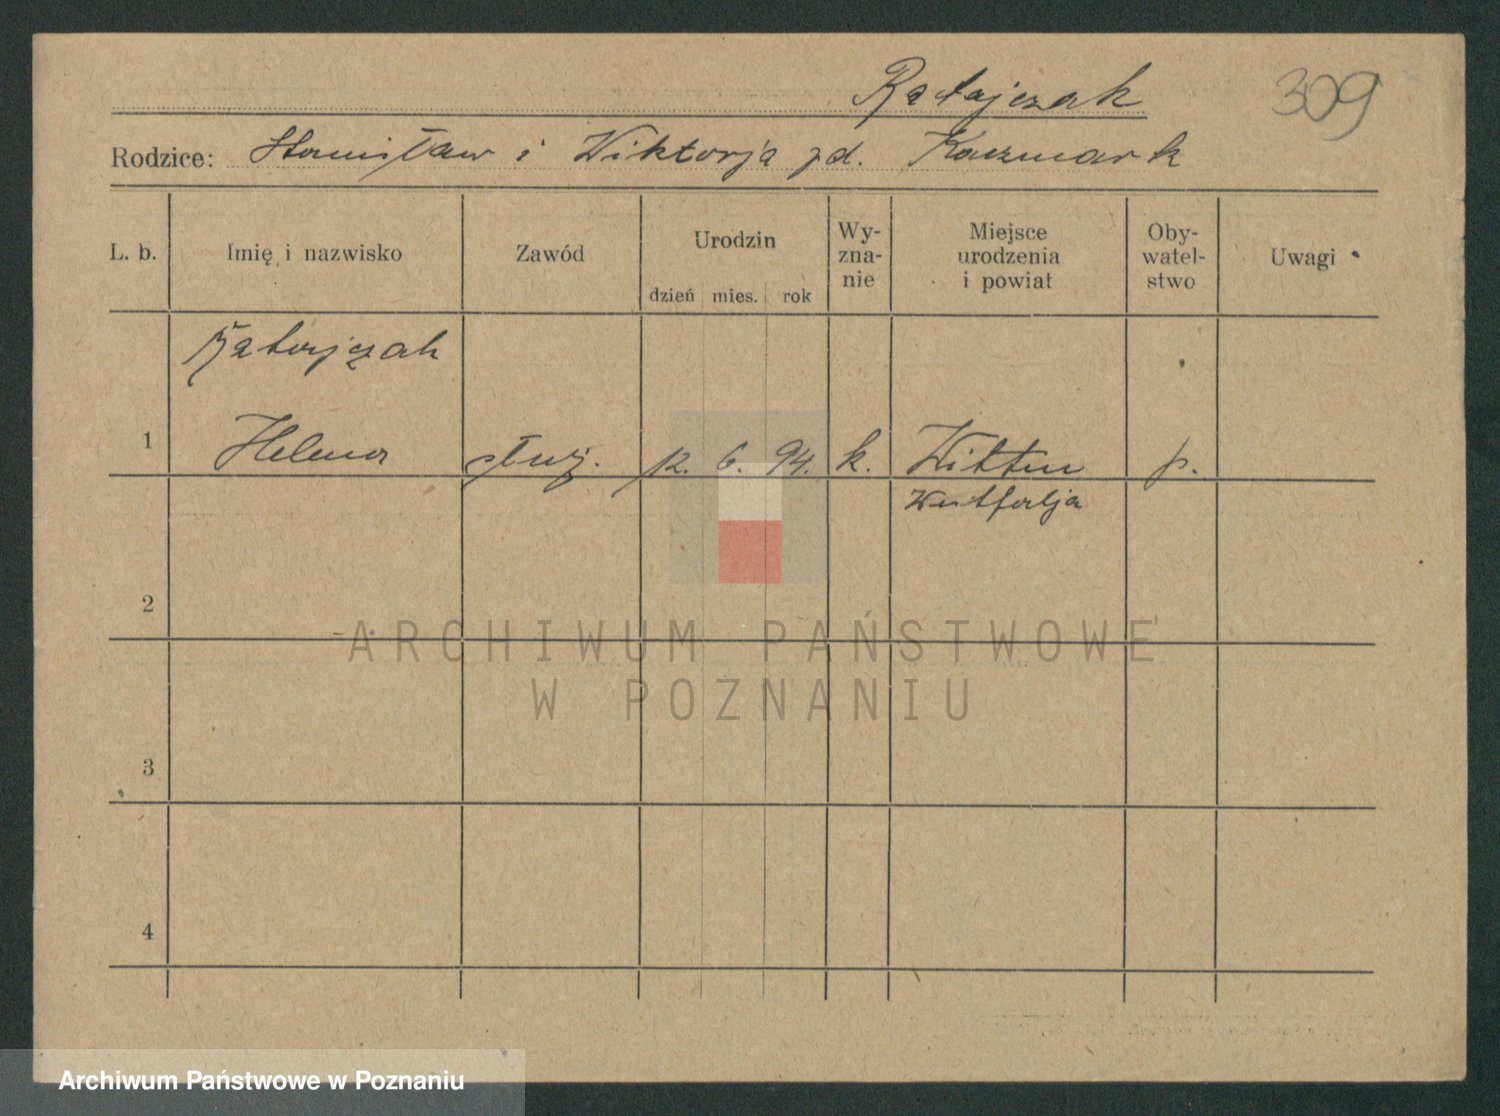 Ratajczak 309
Rodzice: Stanisław i Wiktorja zd. Kaczmarek
L. b. Imię i nazwisko Zawód Urodzin dzień mies. rok Wy-zna-nie Miejsce urodzenia i powiat Oby-watel-stwo Uwagi
Ratajczak
1 Helena służ. 12. 6. 94. k. Witten p.
Westfalja
2
ARCHIWUM PAŃSTWOWE
W POZNANIU
3
4
Archiwum Państwowe w Poznaniu